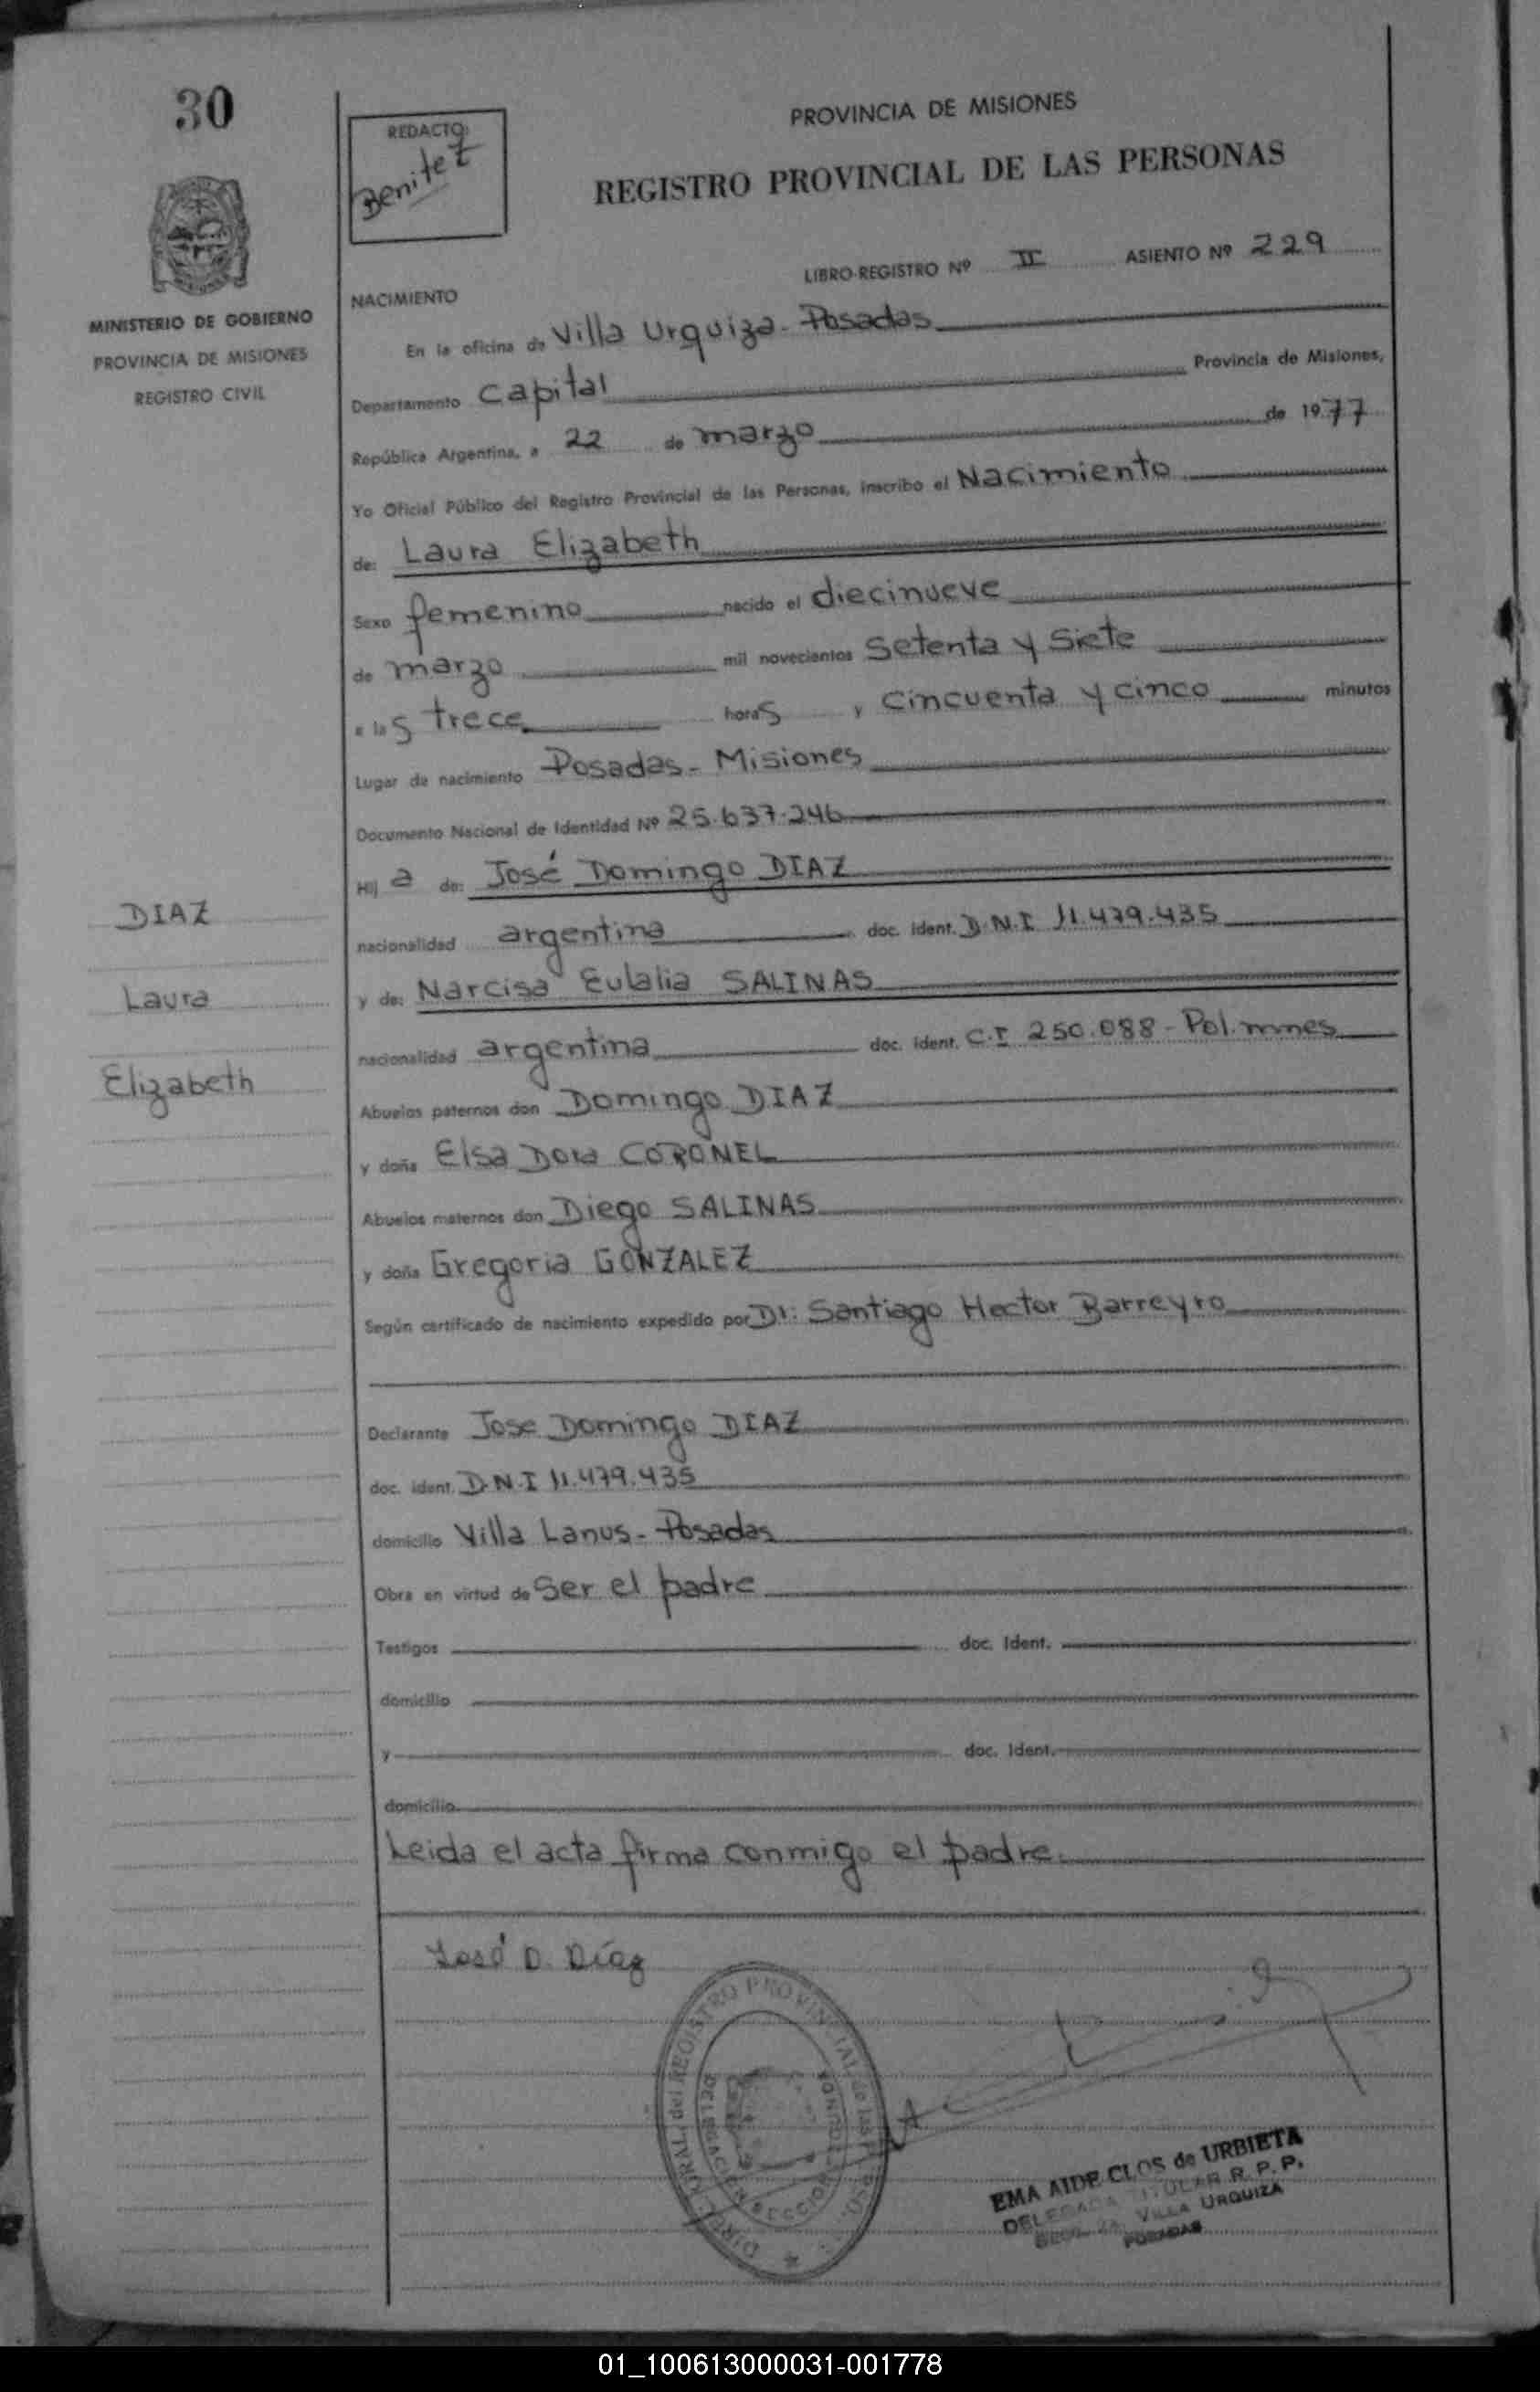 30
REDACTO:
Benitez
MINISTERIO DE GOBIERNO
PROVINCIA DE MISIONES
REGISTRO CIVIL
PROVINCIA DE MISIONES
REGISTRO PROVINCIAL DE LAS PERSONAS
LIBRO-REGISTRO Nº II ASIENTO Nº 229
NACIMIENTO
En la oficina de Villa Urquiza - Posadas
Departamento Capital Provincia de Misiones,
República Argentina, a 22 de marzo de 1977
Yo Oficial Público del Registro Provincial de las Personas, inscribo el Nacimiento
de: Laura Elizabeth
Sexo femenino nacido el diecinueve
de marzo mil novecientos Setenta y Siete
a las trece horas y cincuenta y cinco minutos
Lugar de nacimiento Posadas - Misiones
Documento Nacional de Identidad Nº 25.637.246
Hij a de: José Domingo DIAZ
nacionalidad argentina doc. ident. D.N.I 11.479.435
y de: Narcisa Eulalia SALINAS
nacionalidad argentina doc. ident. C.I 250.088 - Pol. mnes
Abuelos paternos don Domingo DIAZ
y doña Elsa Dora CORONEL
Abuelos maternos don Diego SALINAS
y doña Gregoria GONZALEZ
Según certificado de nacimiento expedido por Dr: Santiago Hector Barreyro
Declarante Jose Domingo DIAZ
doc. ident. D.N.I 11.479.435
domicilio Villa Lanus - Posadas
Obra en virtud de Ser el padre
Testigos doc. Ident.
domicilio
y doc. Ident.
domicilio
Leida el acta firma conmigo el padre.
DIAZ
Laura
Elizabeth
José D. Díaz
EMA AIDE CLOS de URBIETA
DELEGADA TITULAR R. P. P.
SECC. 2a. VILLA URQUIZA
POSADAS
01_100613000031-001778